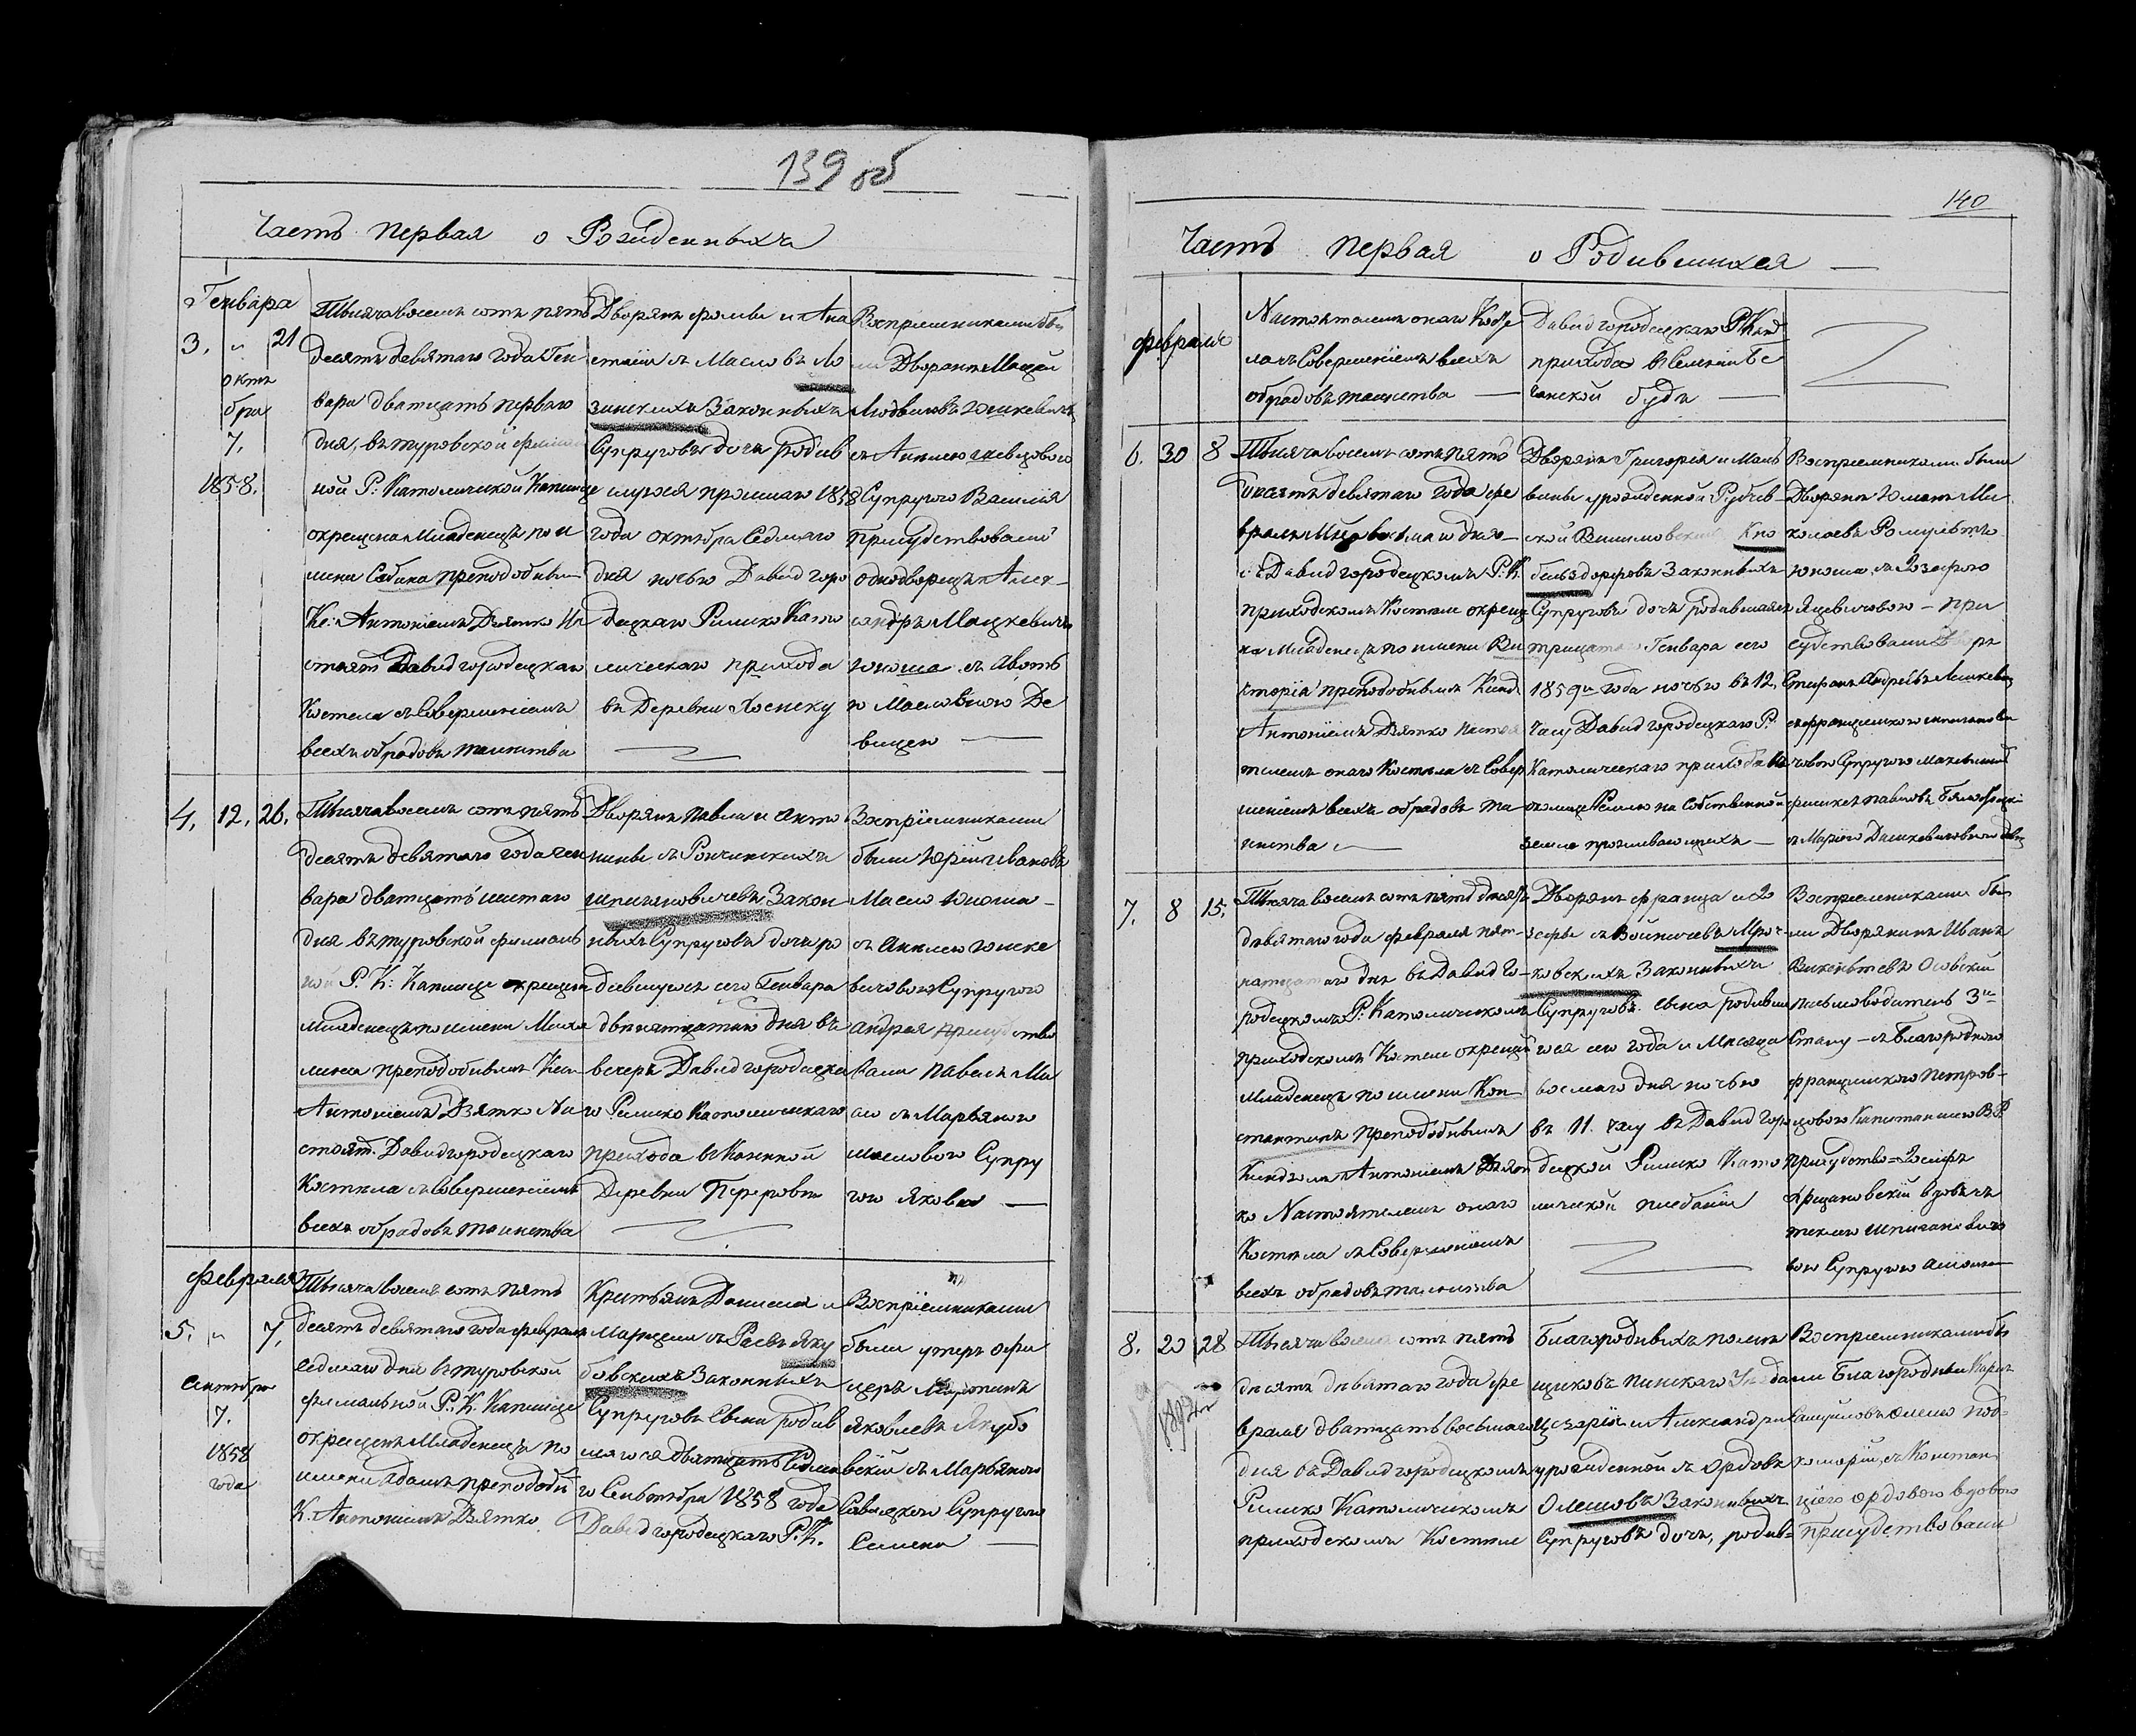 139 об
Часть первая о Рожденныхъ
Генвара
3. и 21
октя
бря
7.
1858.
Тысяча восемь сотъ пять
десятъ девятаго года Ген
вара дватцать перваго
дня, въ туровской
ной Р: Католической Каплице
окрещена Младенецъ по и
мени Сабина преподобным
Кс: Антоніемъ Дзятко На
стоят Давидгородецкаго
Костела съ Совершеніемъ
всехъ обрадовъ таинства
Дворянъ и Ана
стасіи съ Масловъ Ло
зинскихъ Законныхъ
Супруговъ дочь родив
шуюся прошлаго 1858
года октября Седмаго
дня ночью Давидгоро
децкаго Римско Като
лическаго прихода
въ Деревни Хоенску
Воспріемниками бы
ли Дворянъ Мацей
Людвиковъ Юшкевичъ
съ Анелею
Супругою Василія
Присудствовали
однодворецъ Алек
сандръ Мацкевичъ
юноша съ
ю Масловною Де
вицею
4. 12. 26.
Тысяча восемь сотъ пять
десятъ девятаго года ген
вара дватцать шестаго
дня въ туровской филіаль
ной Р. К: Каплице окрещен
Младенецъ по имени
преподобнымъ Ксен
Антоніемъ Дзятко На
стоят. Давидгородецкаго
Костела съ Совершеніемъ
всехъ обрадовъ таинства
Дворянъ Павла и Анто
нины съ Рончинскихъ
Шпигановичевъ Закон
ныхъ Супруговъ дочь ро
дившуюся сего Генвара
двенатцатаго дня въ
вечеръ Давидгородецка
го Римско Католическаго
прихода въ Казенной
Деревни Переровъ
Воспріемниками
были Юрій Ивановъ
Масло Юноша
съ Анелею Юшке
вичовою Супругою
Андрея присудство
вали Павелъ Ма
сло съ Марьяною
Масловою Супру
гою Якова
февраля
5. и 7.
Сентября
7.
1858
года
Тысяча восемь сотъ пять
десятъ девятаго года февраля
седмаго дня въ туровской
филіальной Р. К. Каплице
окрещенъ Младенецъ по
имени Адамъ преподобн
К. Антоніемъ Дзятко
Крестьянъ Даніила и
Марцели съ Раевъ Яку
бовскихъ Законныхъ
Супруговъ Сына родив
шагося двятцать Седма
го Сентября 1858 года
Давидгородецкаго Р. К.
Воспріемниками
были унтеръ офи
церъ Мартинъ
Яковлевъ Якубо
вскій съ Марьяною
Савицкою Супругою
Семена
140
Часть первая о Родившихся
февраля
Настоятелемъ онаго Косте
ла съ Совершеніемъ всехъ
обрадовъ таинства
Давидгородецкаго Р. Кат
прихода въ Селеніи Бе
чанской буде
6. 30 8
Тысяча восемь сотъ пять
десятъ девятаго года фе
враля восьмаго дня
въ Давидгородецкомъ Р. К.
приходскомъ Костеле окрещ
на Младенецъ по имени Ви
кторія преподобнымъ Ксенд
Антоніемъ Дзятко настоя
телемъ онаго Костела съ Совер
шеніемъ всехъ обрадовъ та
инства
Дворянъ Григорія и Маль
вины урожденной Рубчев
ской Кно
бельздорфовъ Законныхъ
Супруговъ дочь родившаяся
трицатаго Генвара сего
1859го года ночью въ 12.
часу Давидгородецкаго Р.
Католическаго прихода въ
на собственной
земле проживающихъ
Воспріемниками были
Дворянъ Юліанъ Ни
колаевъ
юноша съ Іозефою
Яцевичовою — при
судствовали
Стефанъ Андреевъ
съ Францишкою
Супругою
Павловъ
съ Маріею Дашкевичовною
7. 8 15.
Тысяча восемь сотъ пять десятъ
девятаго года февраля пят
натцатаго дня въ Давидго
родецкомъ Р. Католическомъ
приходскомъ Костеле окрещен
Младенецъ по имени Кон
стантинъ преподобнымъ
Ксендзомъ Антоніемъ Дзят
ко Настоятелемъ онаго
Костела съ Совершеніемъ
всехъ обрадовъ таинства
Дворянъ Франца и Ю
зефы съ Войничевъ Мро
ковскихъ Законныхъ
Супруговъ. сына родивша
гося сего года и Месяца
восмаго дня ночью
въ 11. часу въ Давидгоро
децкой Римско Като
лической плебаніи
Воспріемниками бы
ли Дворянинъ Иванъ
Викентьевъ Осовскій
письмоводитель 3го
Стану — съ Благородною
Францишкою Петров
цовою Капитаншею
присудство Іосифъ
вдовецъ
Супругою
8. 20 28
Тысяча восемь сотъ пять
десятъ девятаго года фе
враля двятцать восьмаго
дня въ Давидгородецкомъ
Римско Католическомъ
приходскомъ Костеле
Благородныхъ поме
щиковъ Пинскаго Уезда
Цезарія и Александры
урожденной съ Ордовъ
Олешовъ Законныхъ
Супруговъ дочь, родив
Воспріемниками бы
ли Благородный
Олешо под
коморій, съ Констан
ціею Ордовою вдовою
присудствовали